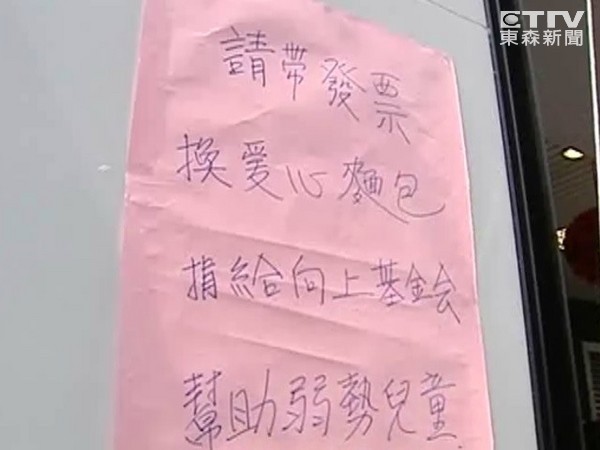 ETTV
東森新聞
請帶發票
換爱心麵包
捐給向上基金会
幫助弱勢兒童